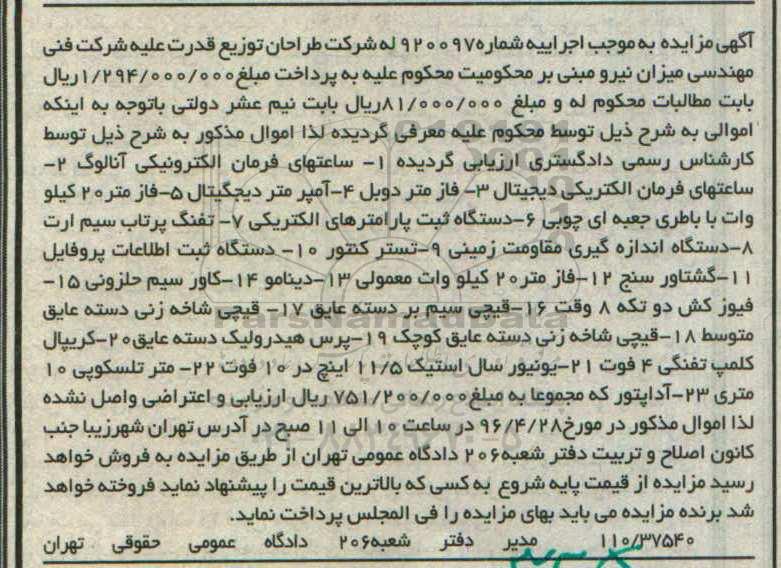 آگهی مزایده به موجب اجراییه شماره ۹۲۰۰۹۷ له شرکت طراحان توزیع قدرت علیه شرکت فنی
مهندسی میزان نیرو مبنی بر محکومیت محکوم علیه به پرداخت مبلغ ۱/۲۹۴/۰۰۰/۰۰۰ ریال
بابت مطالبات محکوم له و مبلغ ۸۱/۰۰۰/۰۰۰ریال بابت نیم عشر دولتی باتوجه به اینکه
اموالی به شرح ذیل توسط محکوم علیه معرفی گردیده لذا اموال مذکور به شرح ذیل توسط
کارشناس رسمی دادگستری ارزیابی گردیده ۱- ساعتهای فرمان الکترونیکی آنالوگ ۲-
ساعتهای فرمان الکتریکی دیجیتال ۳- فاز متر دوبل ۴-آمپر متر دیجگیتال ۵-فاز متر۲۰ کیلو
وات با باطری جعبه ای چوبی ۶-دستگاه ثبت پارامترهای الکتریکی ۷- تفنگ پرتاب سیم ارت
۸-دستگاه اندازه گیری مقاومت زمینی ۹-تستر کنتور ۱۰- دستگاه ثبت اطلاعات پروفایل
۱۱-گشتاور سنج ۱۲-فاز متر۲۰ کیلو وات معمولی ۱۳-دینامو ۱۴-کاور سیم حلزونی ۱۵-
فیوز کش دو تکه ۸ وقت ۱۶-قیچی سیم بر دسته عایق ۱۷- قیچی شاخه زنی دسته عایق
متوسط ۱۸-قیچی شاخه زنی دسته عایق کوچک ۱۹-پرس هیدرولیک دسته عایق۲۰-کریپال
کلمپ تفنگی ۴ فوت ۲۱-یونیور سال استیک ۱۱/۵ اینچ در ۱۰ فوت ۲۲- متر تلسکوپی ۱۰
متری ۲۳-آداپتور که مجموعا به مبلغ۷۵۱/۲۰۰/۰۰۰ ریال ارزیابی و اعتراضی واصل نشده
لذا اموال مذکور در مورخ۹۶/۴/۲۸ در ساعت ۱۰ الی ۱۱ صبح در آدرس تهران شهرزیبا جنب
کانون اصلاح و تربیت دفتر شعبه۲۰۶ دادگاه عمومی تهران از طریق مزایده به فروش خواهد
رسید مزایده از قیمت پایه شروع به کسی که بالاترین قیمت را پیشنهاد نماید فروخته خواهد
شد برنده مزایده می باید بهای مزایده را فی المجلس پرداخت نماید.
۱۱۰/۳۷۵۴۰ مدیر دفتر شعبه۲۰۶ دادگاه عمومی حقوقی تهران
ParsNamadData